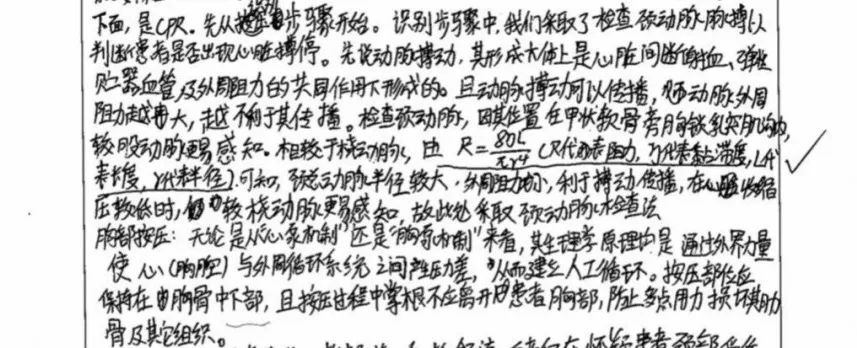 下面,是CPR。先从 步骤开始。识别步骤中,我们采取了检查颈动脉脉搏以
判断患者是否出现心脏搏停。先说动脉搏动,其形成大体上是心脏间断射血、弹性
贮器血管及外周阻力的共同作用下形成的。且动脉搏动可以传播,而动脉外周
阻力越大,越不利于其传播。检查颈动脉,因其位置在甲状软骨旁胸锁乳突肌沟内,
较股动脉更易感知。相较于桡动脉,由 R=8ηL/πr4 (R代表阻力,η代表黏滞度,L代
表长度,r代表半径)可知,颈总动脉半径较大,外周阻力小,利于搏动传播,在心脏收缩
压较低时,仍较桡动脉更易感知,故此处采取颈动脉检查法
胸部按压:无论是从"心泵机制"还是"胸泵机制"来看,其生理学原理均是通过外界力量
使心(胸腔)与外周循环系统之间产生压力差,从而建立人工循环。按压部位应
保持在胸骨中下部,且按压过程中掌根不应离开患者胸部,防止多点用力损坏其肋
骨及其它组织。